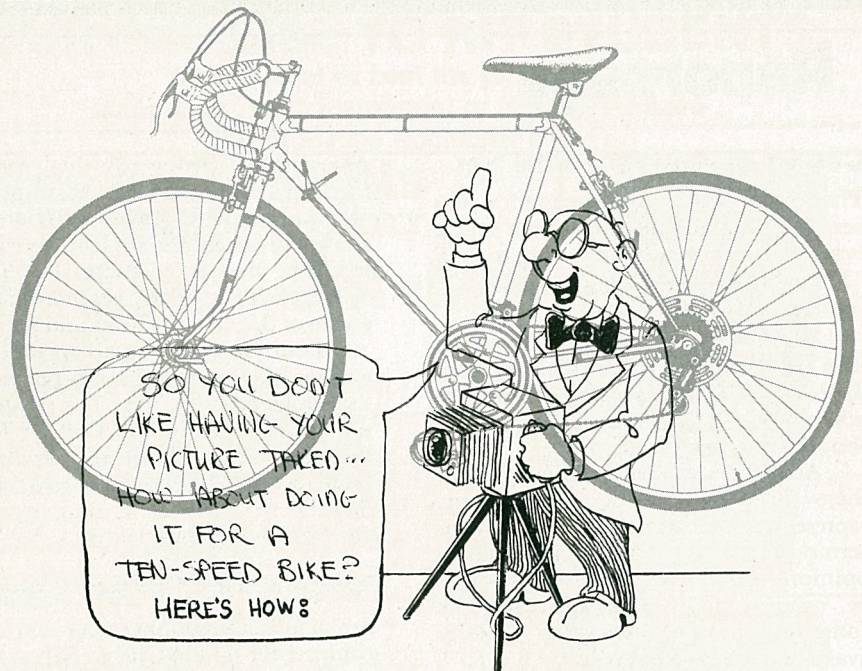 SO YOU DON'T
LIKE HAVING YOUR
PICTURE TAKEN...
HOW ABOUT DOING
IT FOR A
TEN-SPEED BIKE?
HERE'S HOW: